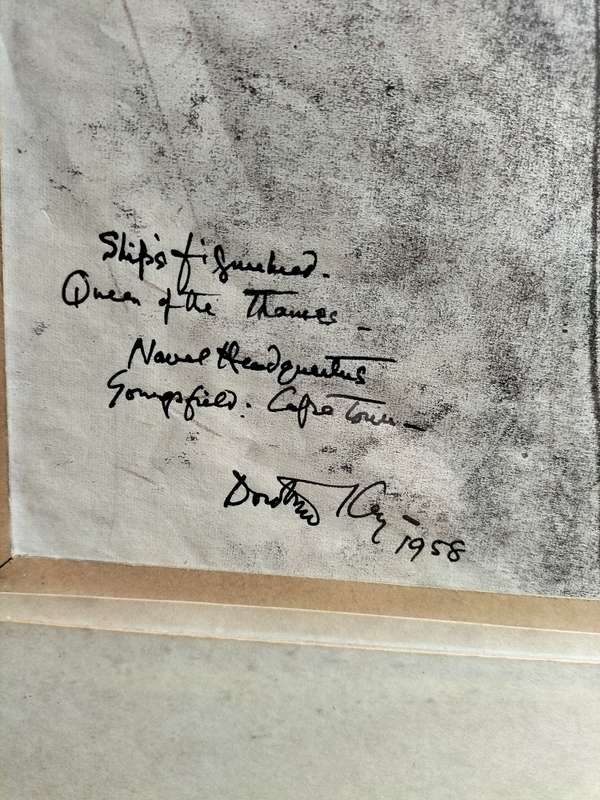 Ship's figurehead.
Queen of the Thames –
Naval Headquarters
Youngsfield. Cape Town –
Dorothy Kay – 1958